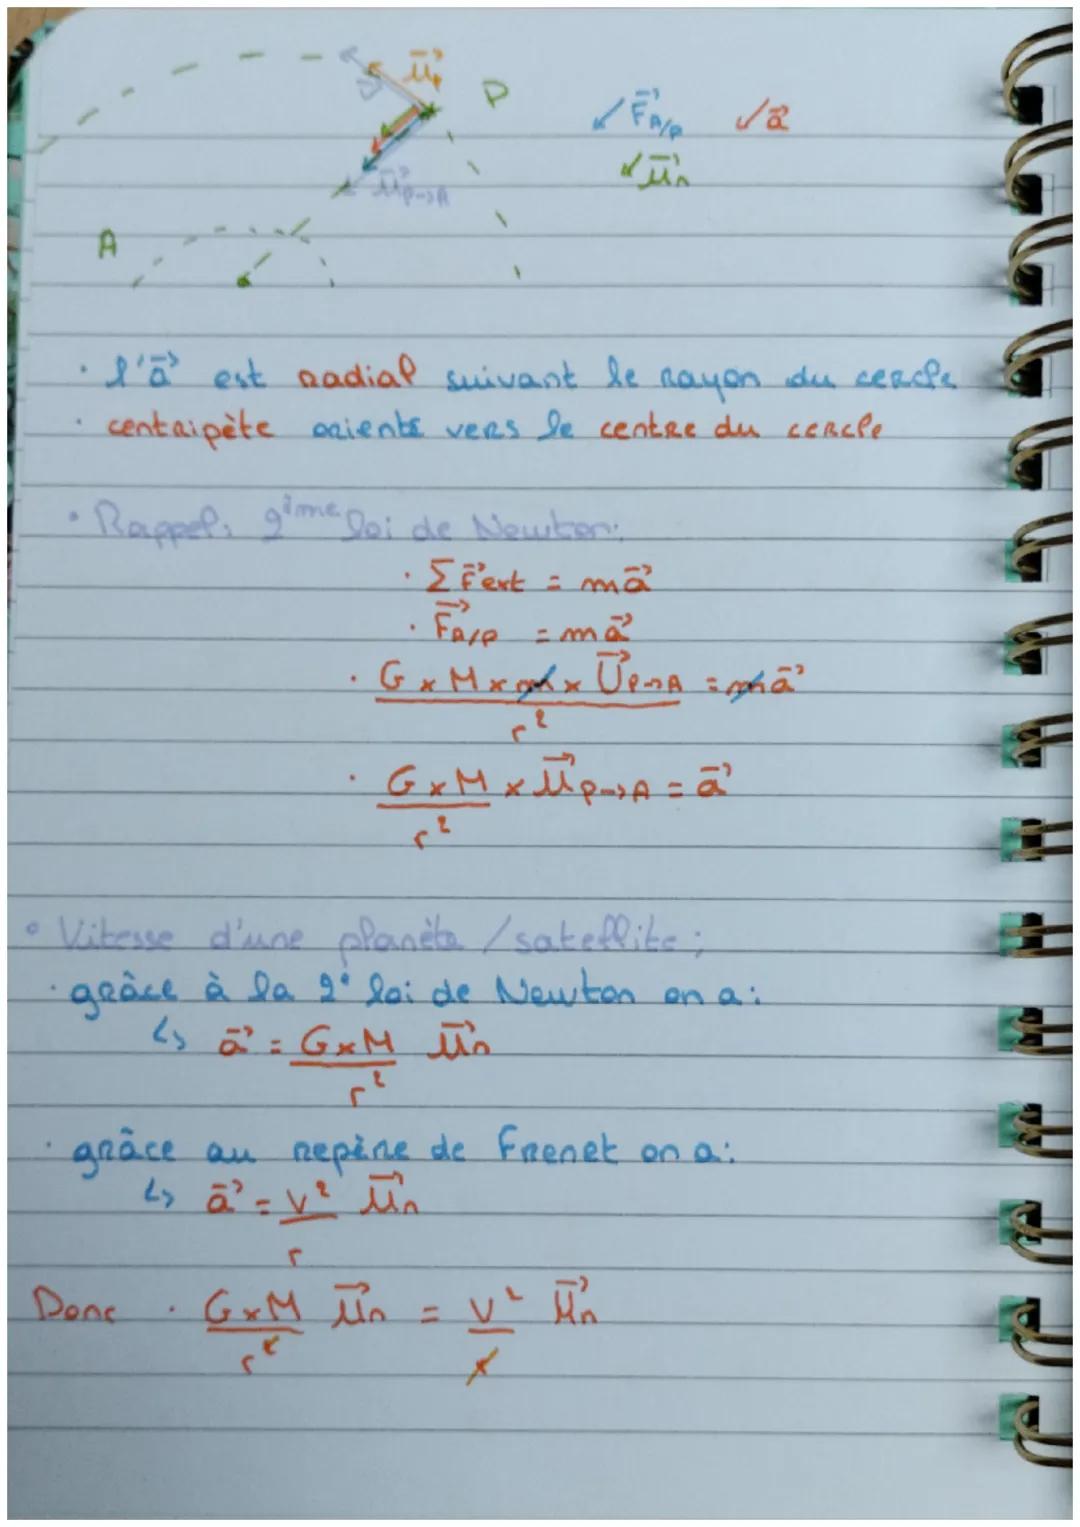 u⃗t
P
F⃗A/P
a⃗
u⃗n
u⃗P→A
A
· l'a⃗ est radial suivant le rayon du cercle
· centripète orienté vers le centre du cercle
· Rappel: 2ième loi de Newton:
· ΣF⃗ext = ma⃗
· F⃗A/P = ma⃗
· G x M x m x U⃗P→A / r² = ma⃗
· G x M / r² x u⃗P→A = a⃗
° Vitesse d'une planète / satellite ;
· grâce à la 2° loi de Newton on a:
↳ a⃗ = G x M / r² u⃗n
· grâce au repère de Frenet on a:
↳ a⃗ = v² / r u⃗n
Donc · G x M / r² u⃗n = v² / r u⃗n